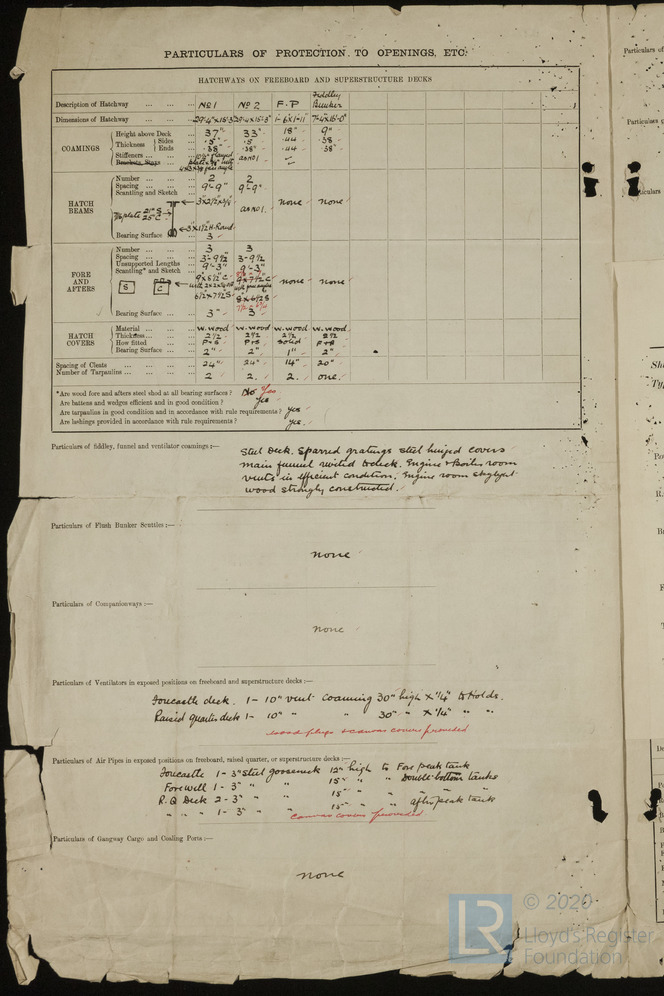 PARTICULARS OF PROTECTION TO OPENINGS, ETC.
Particulars of
HATCHWAYS ON FREEBOARD AND SUPERSTRUCTURE DECKS
Description of Hatchway No 1 No 2 F.P Fiddley Bunker
Dimensions of Hatchway
COAMINGS
Height above Deck 37" 33" 18" 9"
Thickness Sides .5" .5 .44 .38
Ends .38" .38" .44 .38"
Stiffeners as No 1
HATCH BEAMS
Number 2 2
Spacing 9'-9" 9'-9"
Scantling and Sketch as No 1. none none
Bearing Surface 3
FORE AND AFTERS
Number 3 3
Spacing 3'-9½ 3-9½
Unsupported Lengths 9'-3" 9'-3"
Scantling* and Sketch none none
S C
Bearing Surface 3" 3
HATCH COVERS
Material W.wood W.wood W.wood W.wood
Thickness 2½ 2½ 2½ 2½
How fitted P+S P+S Solid F+A
Bearing Surface 2" 2" 1" 2"
Spacing of Cleats 24" 24" 14" 20"
Number of Tarpaulins 2 2. 2. one.
*Are wood fore and afters steel shod at all bearing surfaces? No Yes
Are battens and wedges efficient and in good condition? Yes
Are tarpaulins in good condition and in accordance with rule requirements? Yes
Are lashings provided in accordance with rule requirements? Yes.
Particulars of fiddley, funnel and ventilator coamings:—
Steel Deck. Sparred gratings steel hinged covers
main funnel riveted to deck. Engine & Boiler room
vents in efficient condition. Engine room skylight
wood strongly constructed.
Particulars of Flush Bunker Scuttles:—
none
Particulars of Companionways:—
none
Particulars of Ventilators in exposed positions on freeboard and superstructure decks:—
Forecastle deck. 1- 10" vent coaming 30" high x ¼" to Holds.
Raised quarter deck 1- 10" " " 30" " x ¼" " "
wood plugs & canvas covers provided
Particulars of Air Pipes in exposed positions on freeboard, raised quarter, or superstructure decks:—
Forecastle 1- 3" steel gooseneck 12" high to Fore peak tank
Forewell 1- 3" " " 15" " " Double bottom tanks
R.Q Deck 2- 3" " " 15" " " "
" " 1- 3" " " 15" " " after peak tank
canvas covers provided
Particulars of Gangway Cargo and Coaling Ports:—
none
LR
© 2020
Lloyd's Register
Foundation